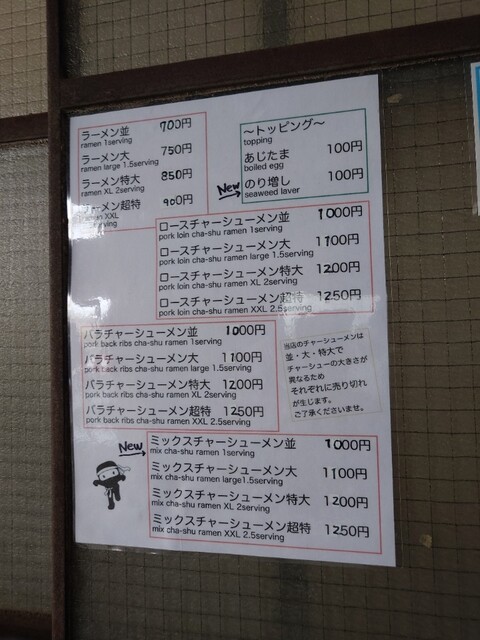 ラーメン並 700円
ramen 1serving
ラーメン大 750円
ramen large 1.5serving
ラーメン特大 850円
ramen XL 2serving
ラーメン超特 900円
XXL
2.5serving
〜トッピング〜
topping
あじたま 100円
boiled egg
New
のり増し 100円
seaweed laver
ロースチャーシューメン並 1000円
pork loin cha-shu ramen 1serving
ロースチャーシューメン大 1100円
pork loin cha-shu ramen large 1.5serving
ロースチャーシューメン特大 1200円
pork loin cha-shu ramen XL 2serving
ロースチャーシューメン超特 1250円
pork loin cha-shu ramen XXL 2.5serving
バラチャーシューメン並 1000円
pork back ribs cha-shu ramen 1serving
バラチャーシューメン大 1100円
pork back ribs cha-shu ramen large 1.5serving
バラチャーシューメン特大 1200円
pork back ribs cha-shu ramen XL 2serving
バラチャーシューメン超特 1250円
pork back ribs cha-shu ramen XXL 2.5serving
当店のチャーシューメンは
並・大・特大で
チャーシューの大きさが
異なるため
それぞれに売り切れ
が生じます。
ご了承くださいませ。
New
ミックスチャーシューメン並 1000円
mix cha-shu ramen 1serving
ミックスチャーシューメン大 1100円
mix cha-shu ramen large1.5serving
ミックスチャーシューメン特大 1200円
mix cha-shu ramen XL 2serving
ミックスチャーシューメン超特 1250円
mix cha-shu ramen XXL 2.5serving